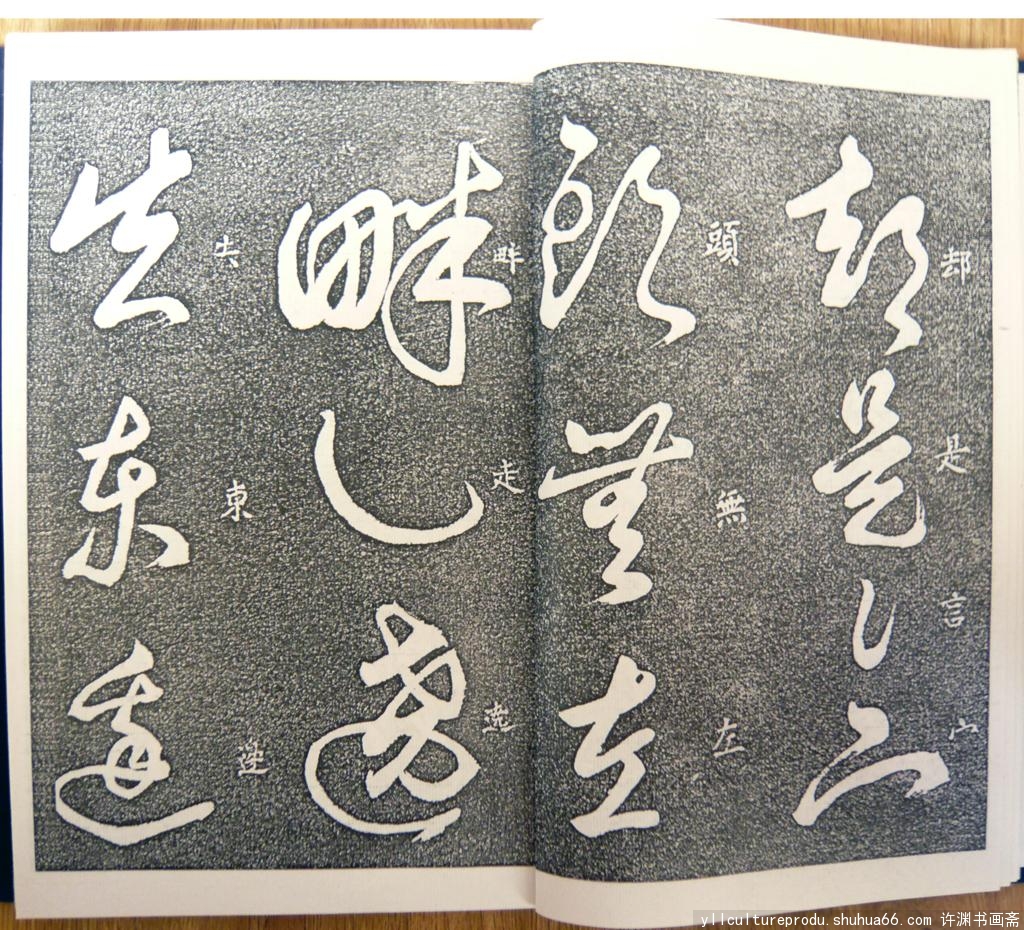 却是言宀
頭無左
畔走遶
去東邊
yllcultureprodu.shuhua66.com 许渊书画斋